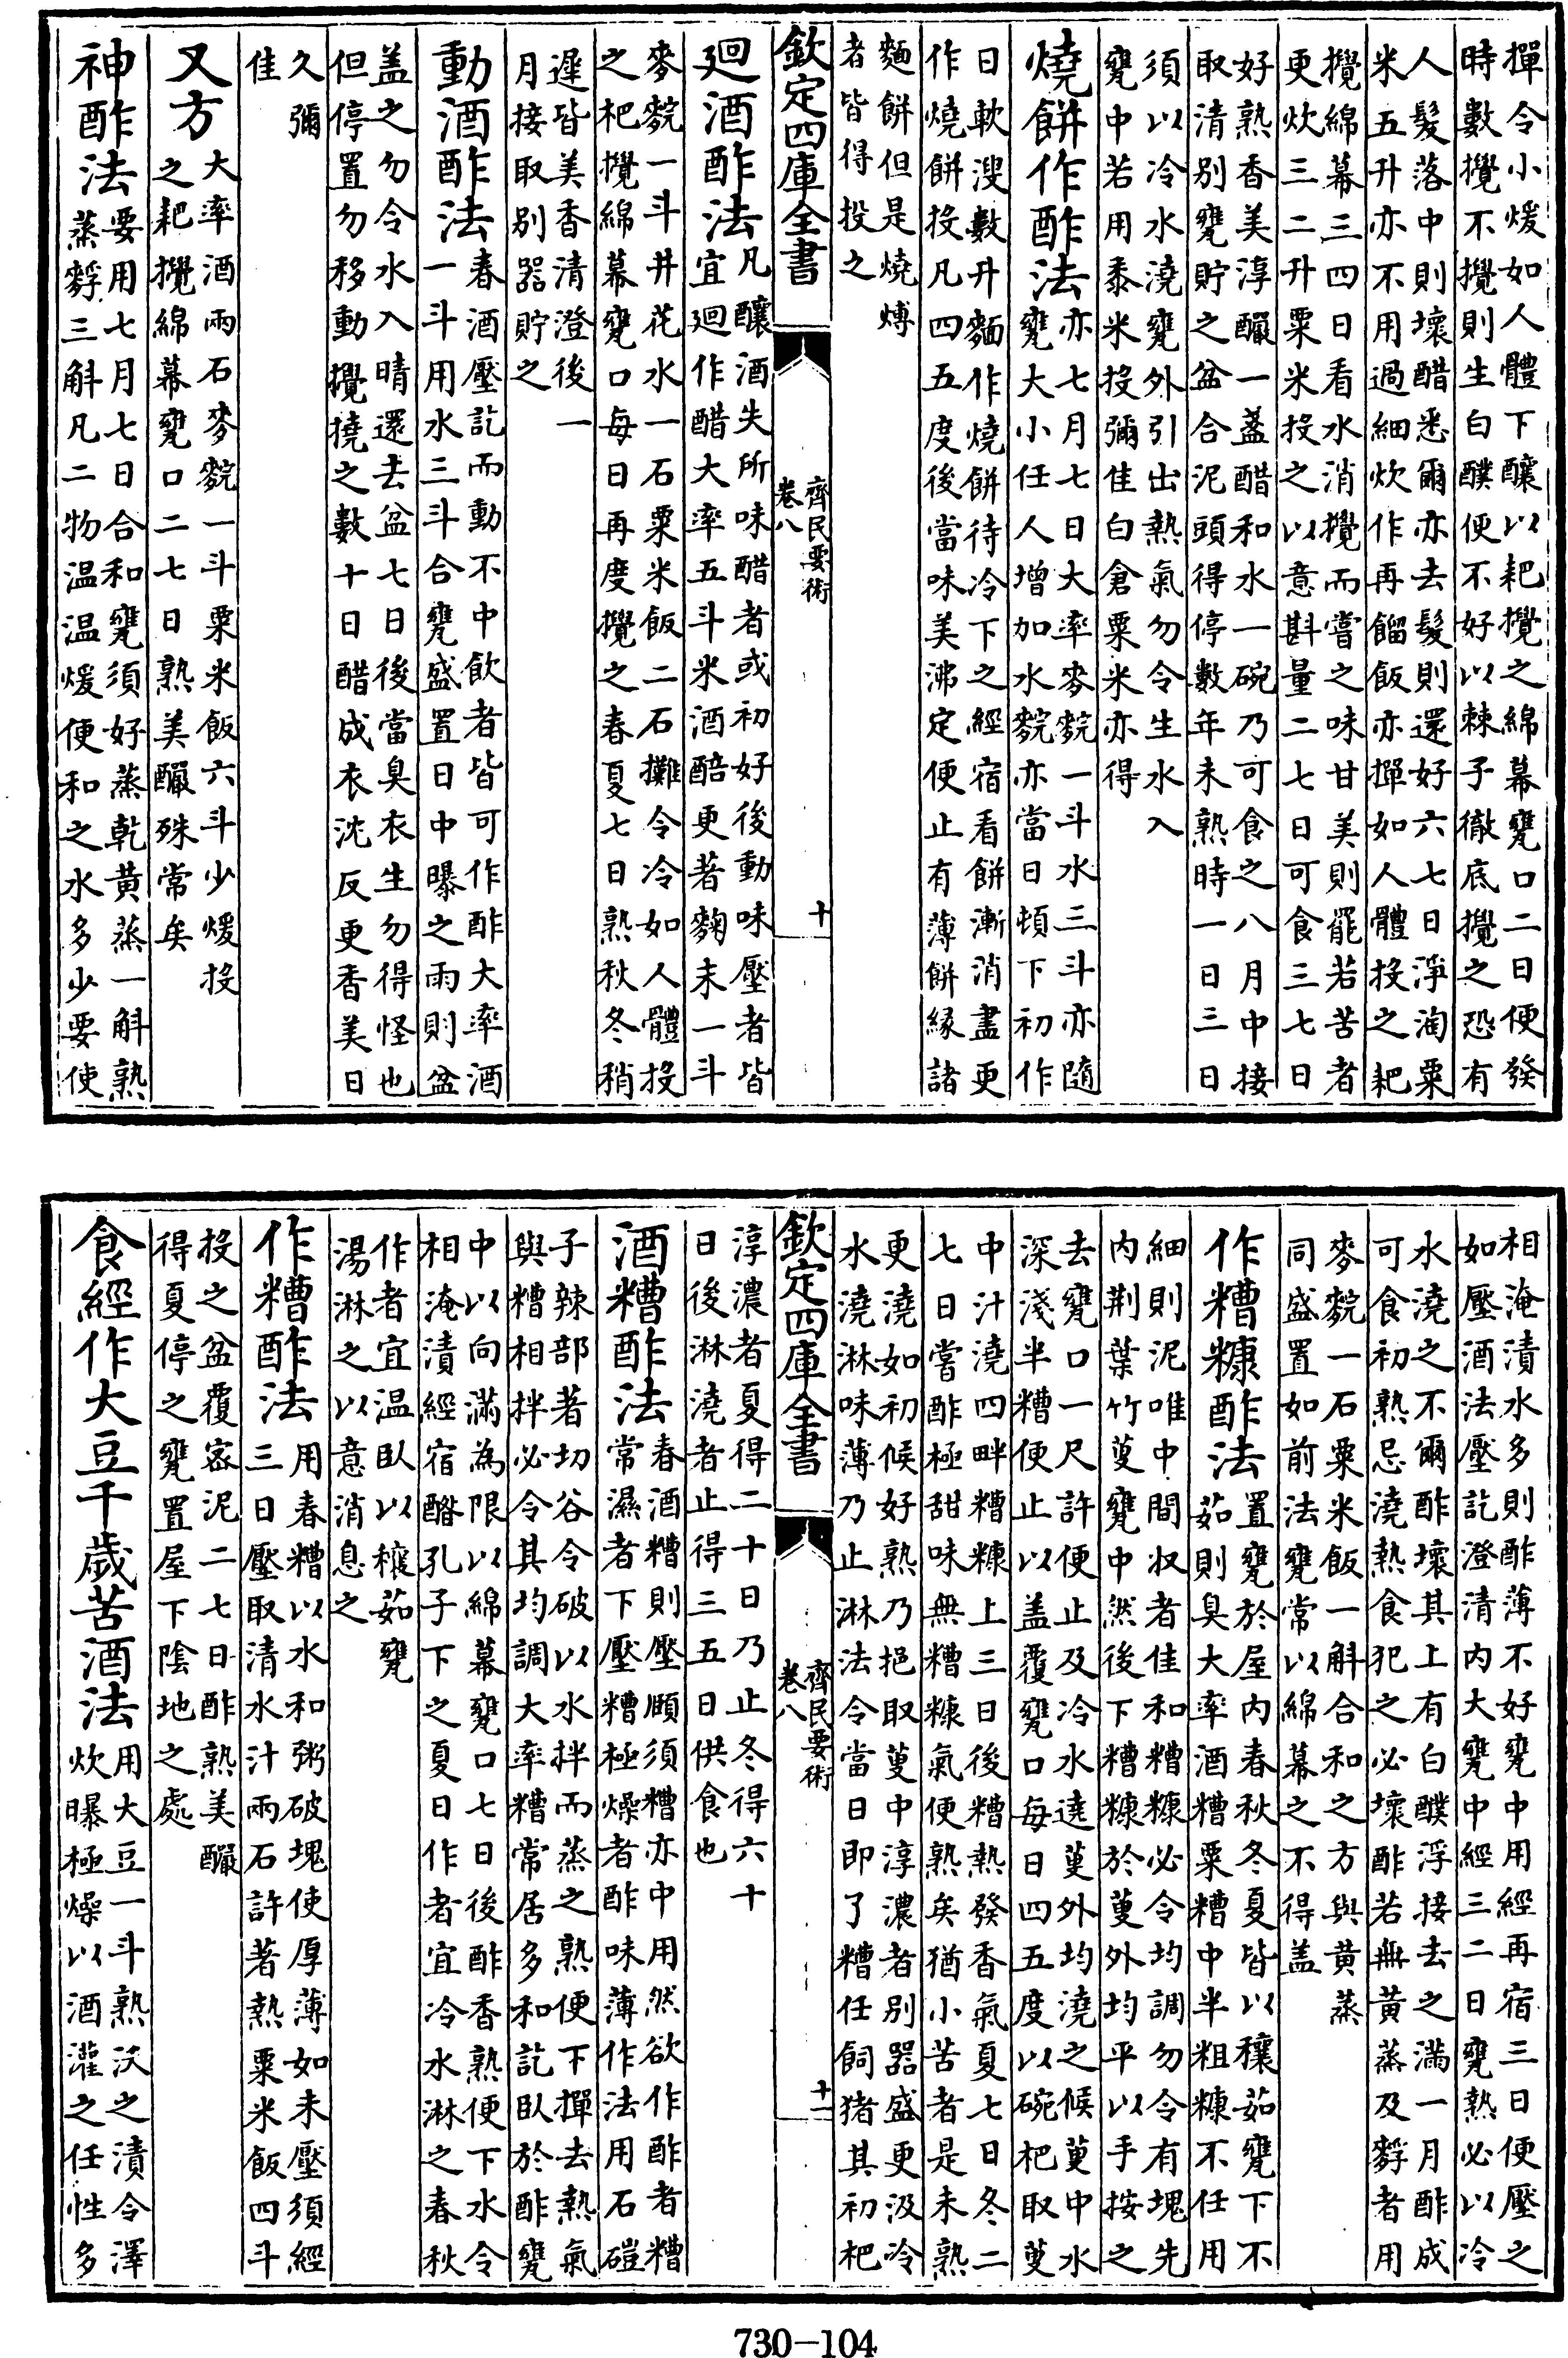 撣令小煖如人體下釀以耙攪之綿幕甕口二日便發
時數攪不攪則生白醭便不好以棘子徹底攪之恐有
人髮落中則壞醋悉爾亦去髮則還好六七日淨淘粟
米五升亦不用過細炊作再餾飯亦撣如人體投之耙
攪綿幕三四日看水消攪而嘗之味甘美則罷若苦者
更炊三二升粟米投之以意斟量二七日可食三七日
好熟香美淳釅一盞醋和水一碗乃可食之八月中接
取清別甕貯之盆合泥頭得停數年未熟時一日三日
須以冷水澆甕外引出熱氣勿令生水入
甕中若用黍米投彌佳白倉粟米亦得
燒餅作酢法亦七月七日大率麥䴷一斗水三斗亦隨
甕大小任人增加水䴷亦當日頓下初作
日軟溲數升麵作燒餅待冷下之經宿看餅漸消盡更
作燒餅投凡四五度後當味美沸定便止有薄餅緣諸
麵餅但是燒煿
者皆得投之
欽定四庫全書
齊民要術
卷八
十
廻酒酢法凡釀酒失所味醋者或初好後動味壓者皆
宜廻作醋大率五斗米酒醅更著麴末一斗
麥䴷一斗井花水一石粟米飯二石攤令冷如人體投
之杷攪綿幕甕口每日再度攪之春夏七日熟秋冬稍
遲皆美香清澄後一
月接取別器貯之
動酒酢法春酒壓訖而動不中飲者皆可作酢大率酒
一斗用水三斗合甕盛置日中曝之雨則盆
盖之勿令水入晴還去盆七日後當臭衣生勿得怪也
但停置勿移動攪撓之數十日醋成衣沈反更香美日
久彌
佳
又方大率酒兩石麥䴷一斗粟米飯六斗少煖投
之耙攪綿幕甕口二七日熟美釅殊常矣
神酢法要用七月七日合和甕須好蒸乾黃蒸一斛熟
蒸䴸三斛凡二物温温煖便和之水多少要使
相淹漬水多則酢薄不好甕中用經再宿三日便壓之
如壓酒法壓訖澄清内大甕中經三二日甕熱必以冷
水澆之不爾酢壞其上有白醭浮接去之滿一月酢成
可食初熟忌澆熱食犯之必壞酢若無黃蒸及䴸者用
麥䴷一石粟米飯一斛合和之方與黃蒸
同盛置如前法甕常以綿幕之不得盖
作糟糠酢法置甕於屋内春秋冬夏皆以穰茹甕下不
茹則臭大率酒糟粟糟中半粗糠不任用
細則泥唯中間収者佳和糟糠必令均調勿令有塊先
内荆葉竹𥰠甕中然後下糟糠於𥰠外均平以手按之
去甕口一尺許便止及冷水遶𥰠外均澆之候𥰠中水
深淺半糟便止以盖覆甕口每日四五度以碗杷取𥰠
中汁澆四畔糟糠上三日後糟熱發香氣夏七日冬二
七日嘗酢極甜味無糟糠氣便熟矣猶小苦者是未熟
更澆如初候好熟乃挹取𥰠中淳濃者別器盛更汲冷
水澆淋味薄乃止淋法令當日即了糟任飼猪其初杷
欽定四庫全書
齊民要術
卷八
十一
淳濃者夏得二十日乃止冬得六十
日後淋澆者止得三五日供食也
酒糟酢法春酒糟則壓頤須糟亦中用然欲作酢者糟
常濕者下壓糟極燥者酢味薄作法用石磑
子辣部著切谷令破以水拌而蒸之熟便下撣去熱氣
與糟相拌必令其均調大率糟常居多和訖臥於酢甕
中以向滿為限以綿幕甕口七日後酢香熟便下水令
相淹漬經宿醦孔子下之夏日作者宜冷水淋之春秋
作者宜温臥以穰茹甕
湯淋之以意消息之
作糟酢法用春糟以水和粥破塊使厚薄如未壓須經
三日壓取清水汁兩石許著熱粟米飯四斗
投之盆覆密泥二七日酢熟美釅
得夏停之甕置屋下陰地之處
食經作大豆千歲苦酒法用大豆一斗熟沃之漬令澤
炊曝極燥以酒灌之任性多
730-104